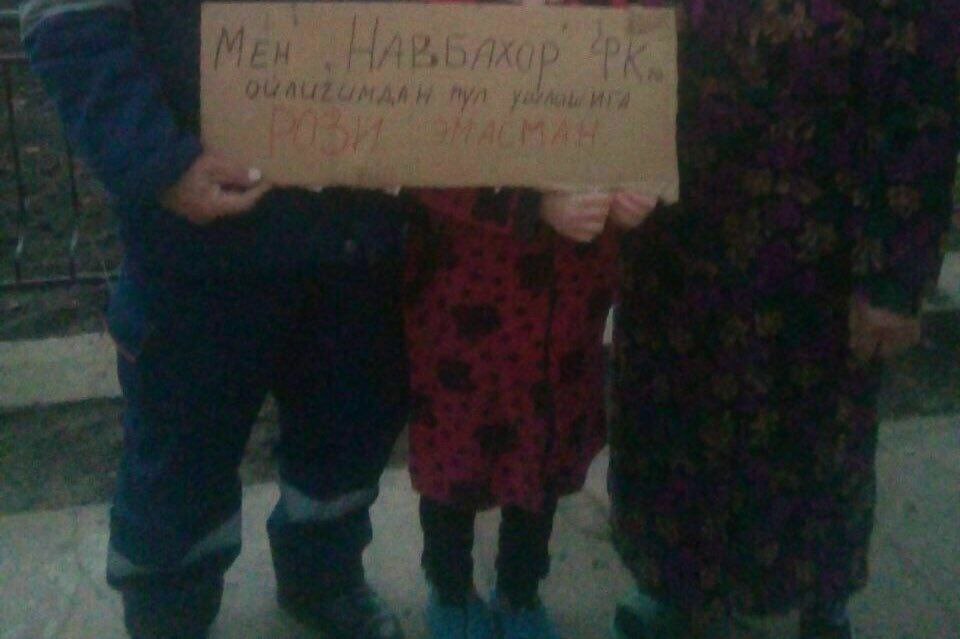 МЕН "НАВБАХОР" ФК га
ОЙЛИГИМДАН ПУЛ УШЛАШИГА
РОЗИ ЭМАСМАН